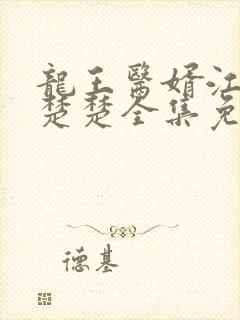 龍王醫婿江
楚楚全集免
德基